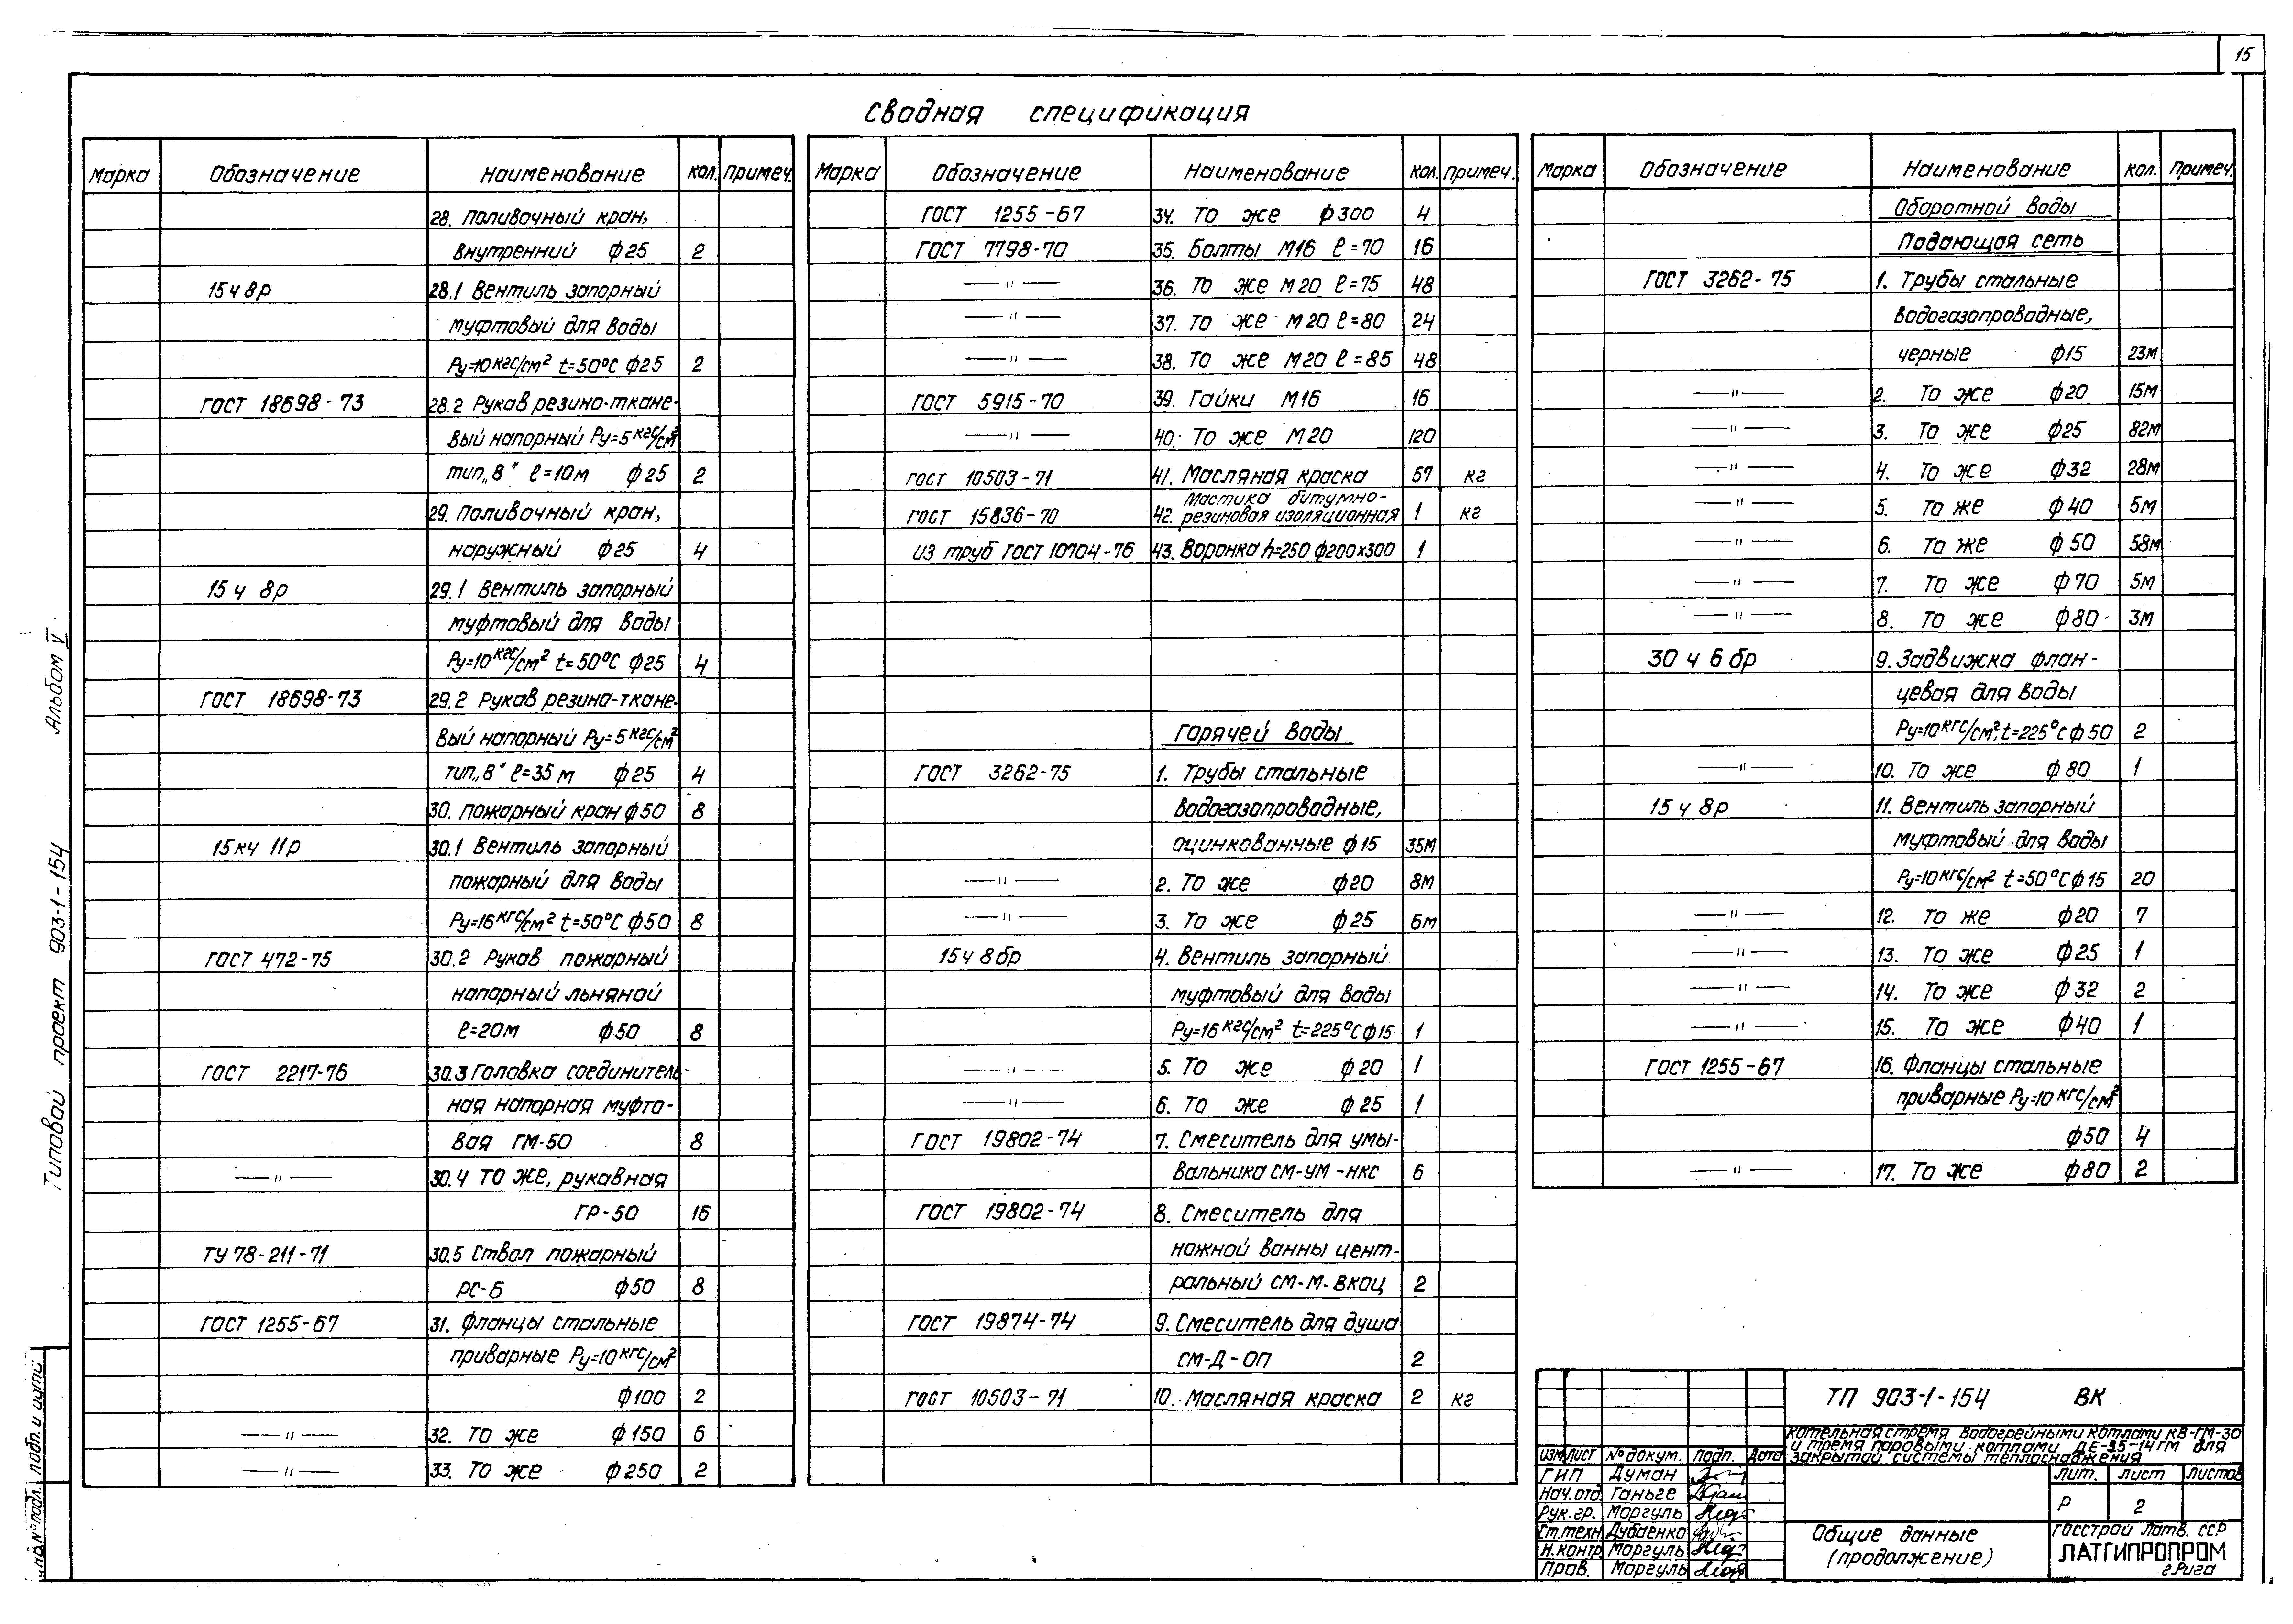 15
Сводная спецификация
Марка Обозначение Наименование Кол. Примеч.
28. Поливочный кран,
внутренний ф25 2
15ч 8р 28.1 Вентиль запорный
муфтовый для воды
Ру=10кгс/см² t=50°С ф25 2
ГОСТ 18698-73 28.2 Рукав резино-ткане-
вый напорный Ру=5кгс/см²
тип„В" ℓ=10м ф25 2
29. Поливочный кран,
наружный ф25 4
15ч 8р 29.1 Вентиль запорный
муфтовый для воды
Ру=10кгс/см² t=50°С ф25 4
ГОСТ 18698-73 29.2 Рукав резино-ткане-
вый напорный Ру=5кгс/см²
тип„В" ℓ=35м ф25 4
30. Пожарный кран ф50 8
15кч 11р 30.1 Вентиль запорный
пожарный для воды
Ру=16кгс/см² t=50°С ф50 8
ГОСТ 472-75 30.2 Рукав пожарный
напорный льняной
ℓ=20м ф50 8
ГОСТ 2217-76 30.3 Головка соединитель-
ная напорная муфто-
вая ГМ-50 8
—"— 30.4 То же, рукавная
ГР-50 16
ТУ 78-211-71 30.5 Ствол пожарный
РС-Б ф50 8
ГОСТ 1255-67 31. Фланцы стальные
приварные Ру=10кгс/см²
ф100 2
—"— 32. То же ф150 6
—"— 33. То же ф250 2
Марка Обозначение Наименование Кол. Примеч.
ГОСТ 1255-67 34. То же ф300 4
ГОСТ 7798-70 35. Болты М16 ℓ=70 16
—"— 36. То же М20 ℓ=75 48
—"— 37. То же М20 ℓ=80 24
—"— 38. То же М20 ℓ=85 48
ГОСТ 5915-70 39. Гайки М16 16
—"— 40. То же М20 120
ГОСТ 10503-71 41. Масляная краска 57 кг
Мастика битумно-
ГОСТ 15836-70 42. резиновая изоляционная 1 кг
из труб ГОСТ 10704-76 43. Воронка h=250 ф200х300 1
Горячей воды
ГОСТ 3262-75 1. Трубы стальные
водогазопроводные,
оцинкованные ф15 35м
—"— 2. То же ф20 8м
—"— 3. То же ф25 6м
15ч 8бр 4. Вентиль запорный
муфтовый для воды
Ру=16кгс/см² t=225°С ф15 1
—"— 5. То же ф20 1
—"— 6. То же ф25 1
ГОСТ 19802-74 7. Смеситель для умы-
вальника СМ-УМ-НКС 6
ГОСТ 19802-74 8. Смеситель для
ножной ванны цент-
ральный СМ-М-ВКОЦ 2
ГОСТ 19874-74 9. Смеситель для душа
СМ-Д-ОП 2
ГОСТ 10503-71 10. Масляная краска 2 кг
Марка Обозначение Наименование Кол. Примеч.
Оборотной воды
Подающая сеть
ГОСТ 3262-75 1. Трубы стальные
водогазопроводные,
черные ф15 23м
—"— 2. То же ф20 15м
—"— 3. То же ф25 82м
—"— 4. То же ф32 28м
—"— 5. То же ф40 5м
—"— 6. То же ф50 58м
—"— 7. То же ф70 5м
—"— 8. То же ф80 3м
30ч 6бр 9. Задвижка флан-
цевая для воды
Ру=10кгс/см², t=225°С ф50 2
—"— 10. То же ф80 1
15ч 8р 11. Вентиль запорный
муфтовый для воды
Ру=10кгс/см² t=50°С ф15 20
—"— 12. То же ф20 7
—"— 13. То же ф25 1
—"— 14. То же ф32 2
—"— 15. То же ф40 1
ГОСТ 1255-67 16. Фланцы стальные
приварные Ру=10кгс/см²
ф50 4
—"— 17. То же ф80 2
Типовой проект 903-1-154 Альбом V
Инв.№подл. подп. и дата
ТП 903-1-154 ВК
Котельная с тремя водогрейными котлами КВ-ГМ-30
и тремя паровыми котлами ДЕ-25-14ГМ для
закрытой системы теплоснабжения
Изм Лист №докум. Подп. Дата
ГИП Думан
Нач.отд. Ганьге
Рук.гр. Моргуль
Ст.техн. Дубаенко
Н.контр. Моргуль
Пров. Моргуль
Лит. Лист Листов
Р 2
Общие данные
(продолжение)
Госстрой Латв. ССР
ЛАТГИПРОПРОМ
г.Рига